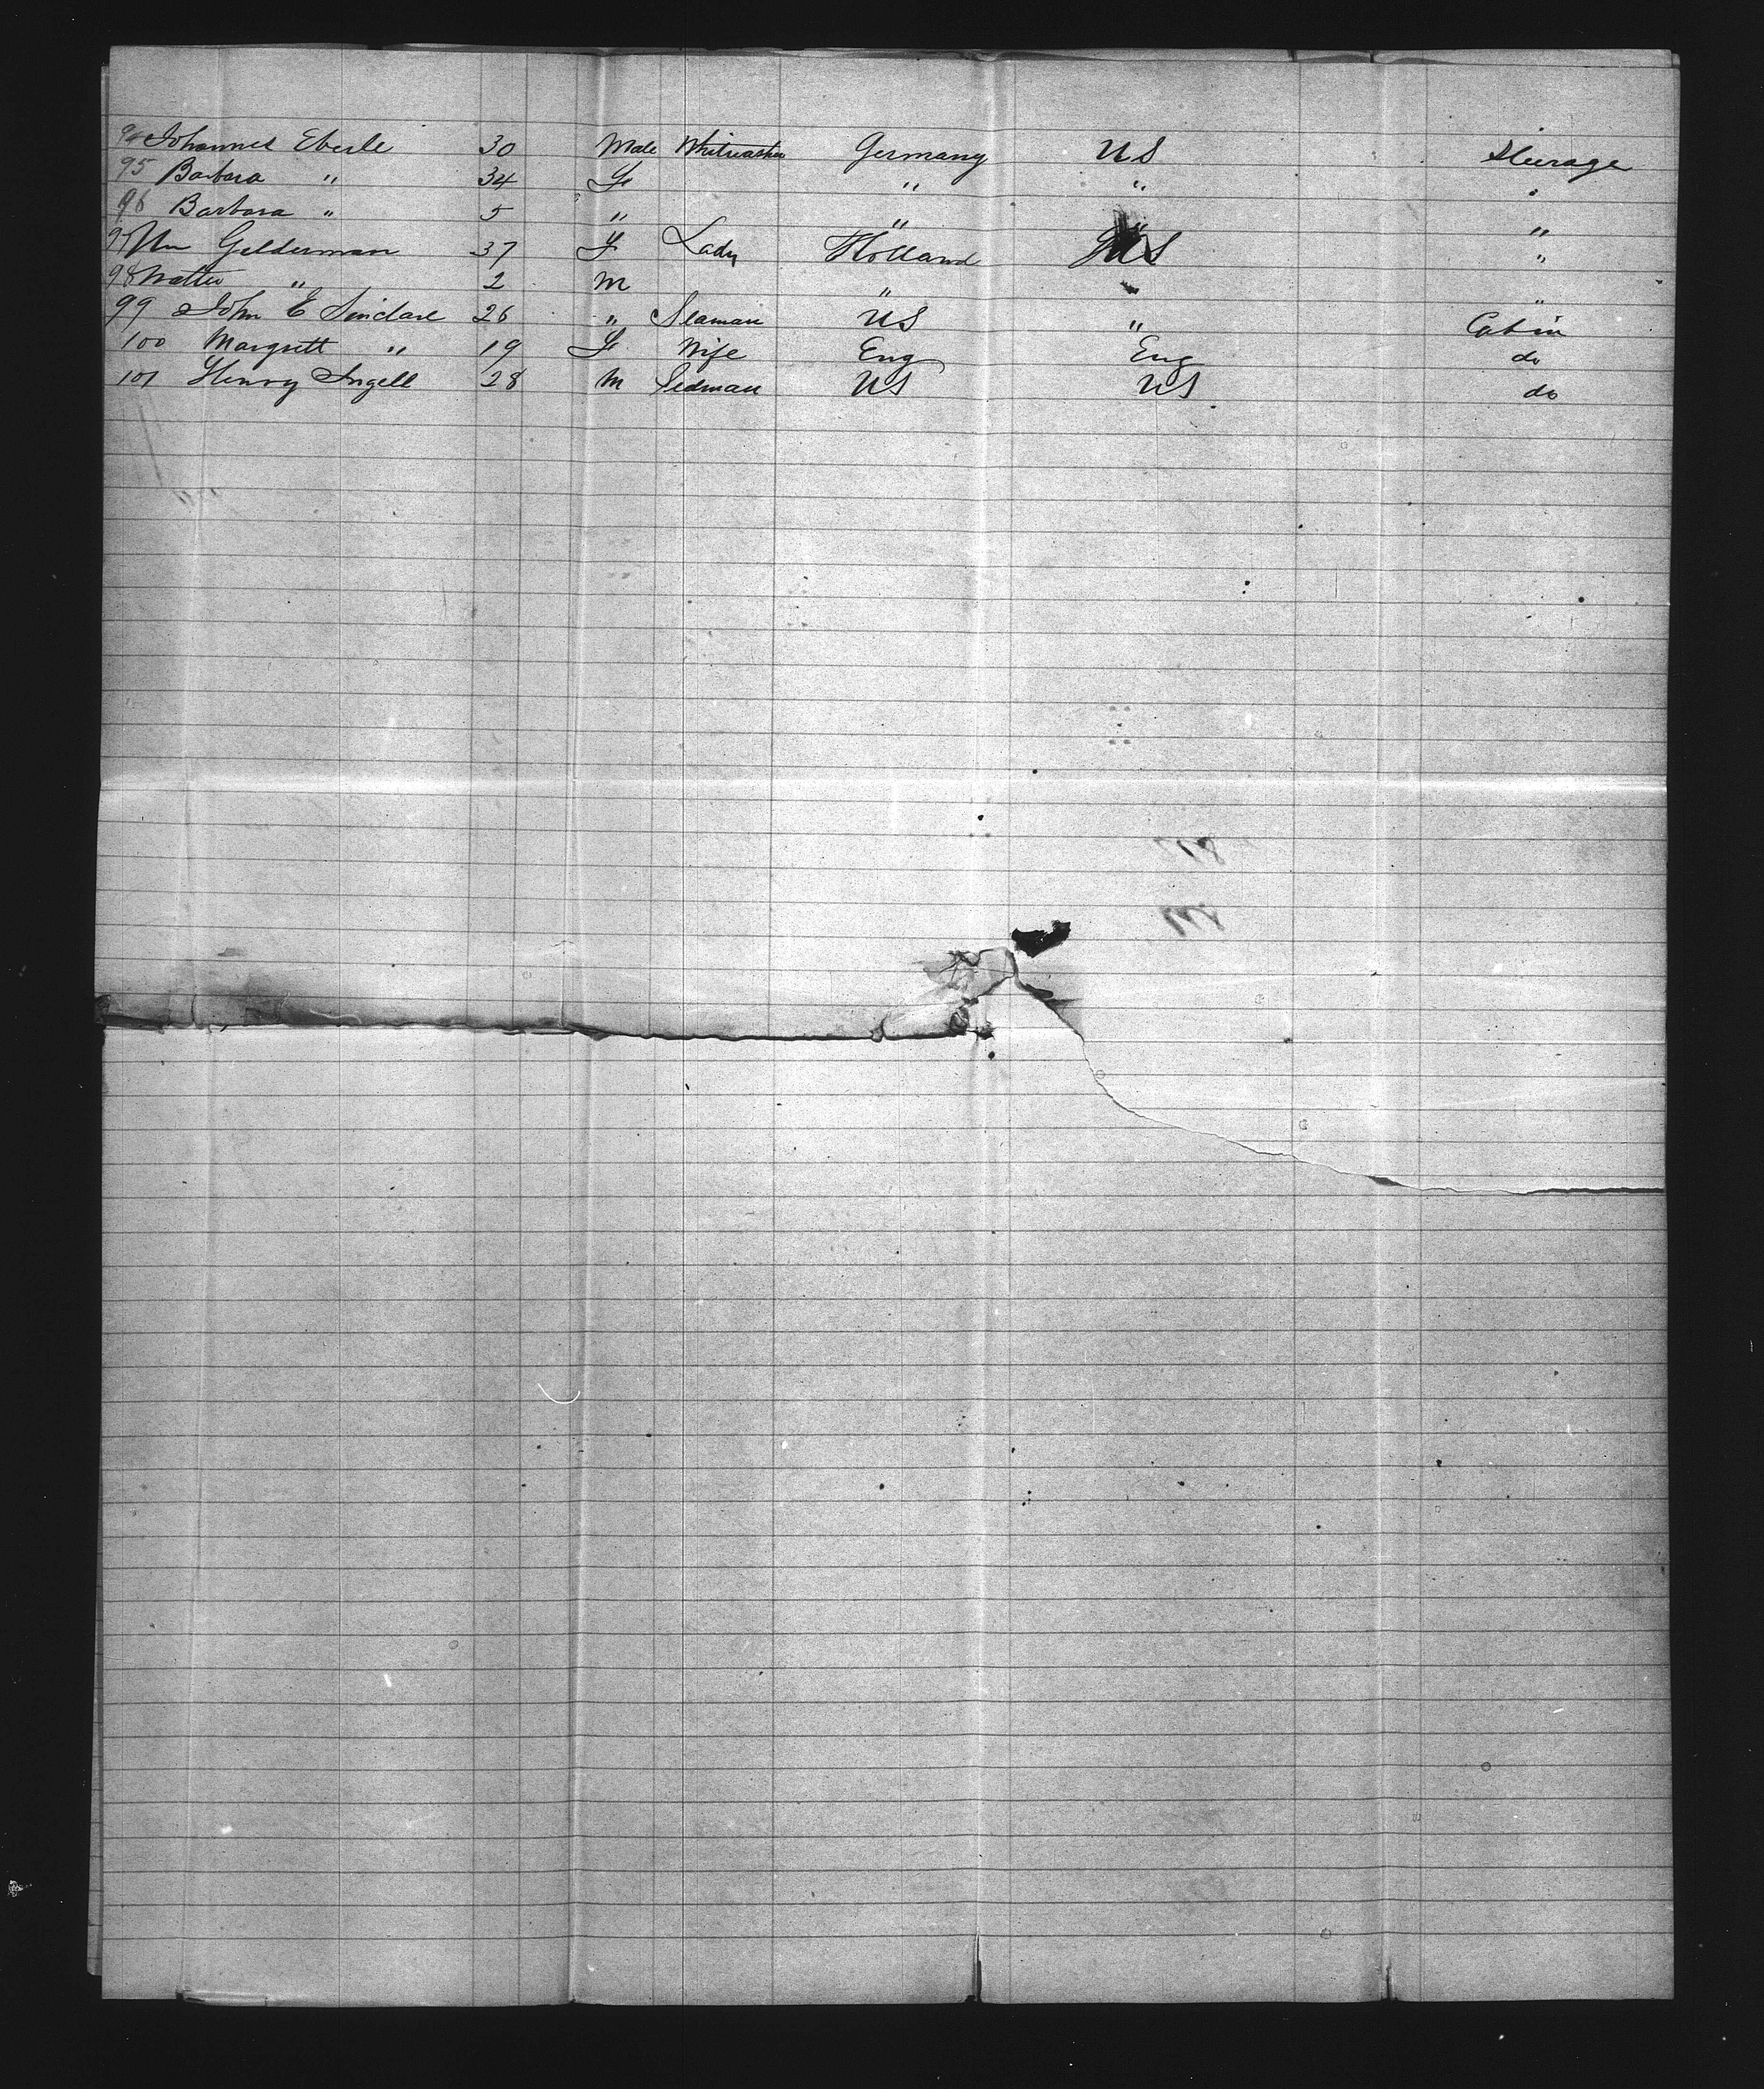 94 Johannes Eberle 30 Male Whitewasher Germany US Steerage
95 Barbara " 34 F " " "
96 Barbara " 5 " " "
97 Gelderman 37 F Lady Holland US "
98 Walter " 2 M " " "
99 John E Sinclare 26 " Seaman US " Cabin
100 Margrett " 19 F Wife Eng Eng do
101 Henry Ingell 28 M Sedman US US do